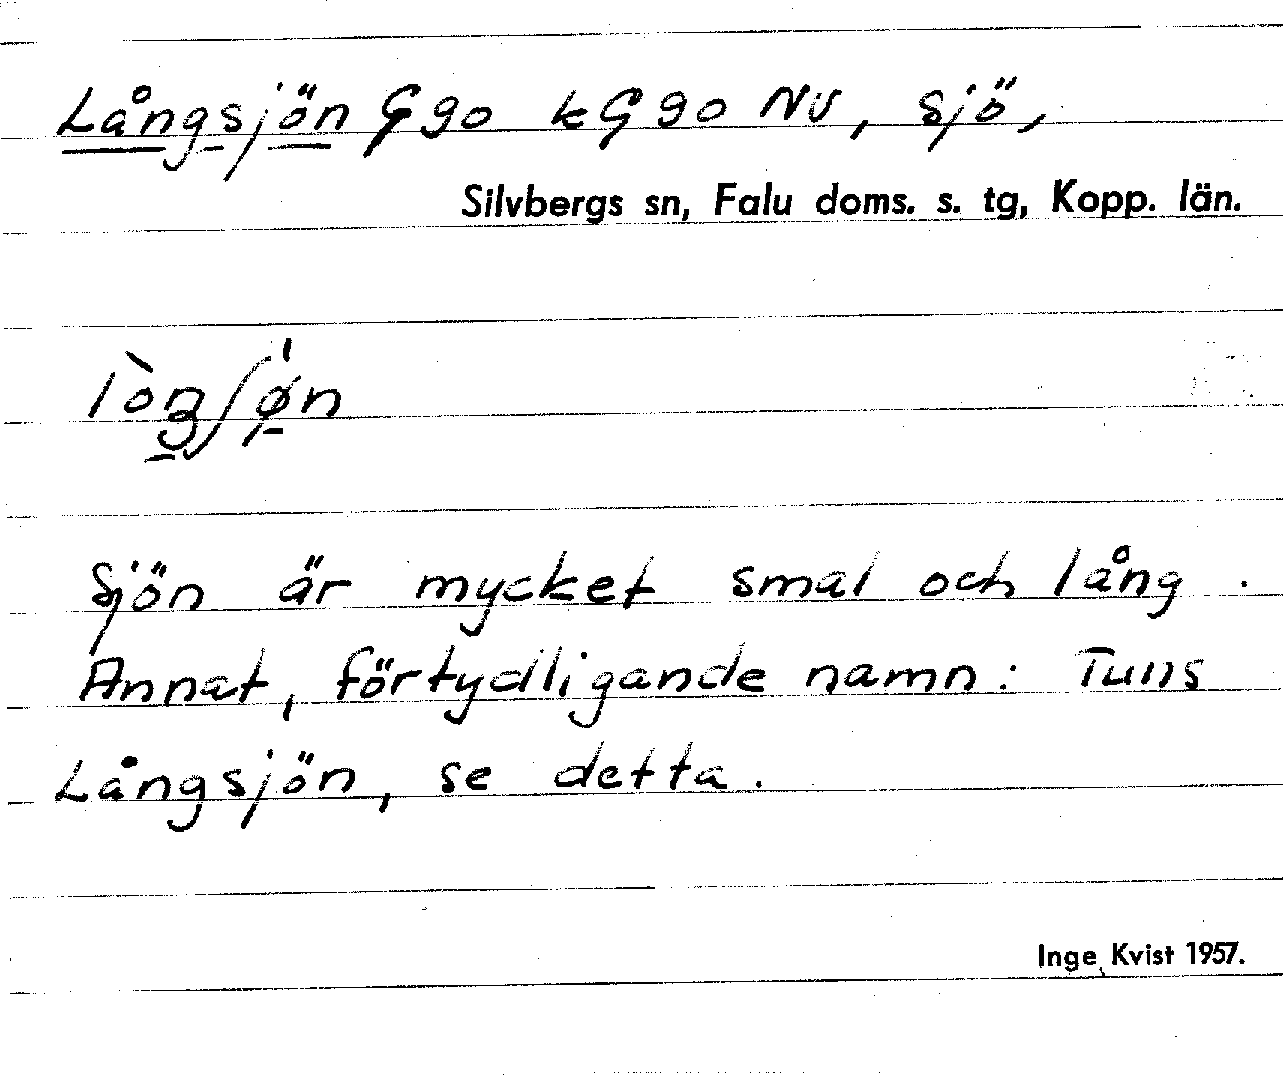 Långsjön G90 kG90 NV, sjö,
Silvbergs sn, Falu doms. s. tg, Kopp. län.
Sjön är mycket smal och lång.
Annat, förtydligande namn: Tuns
Långsjön, se detta.
Inge Kvist 1957.